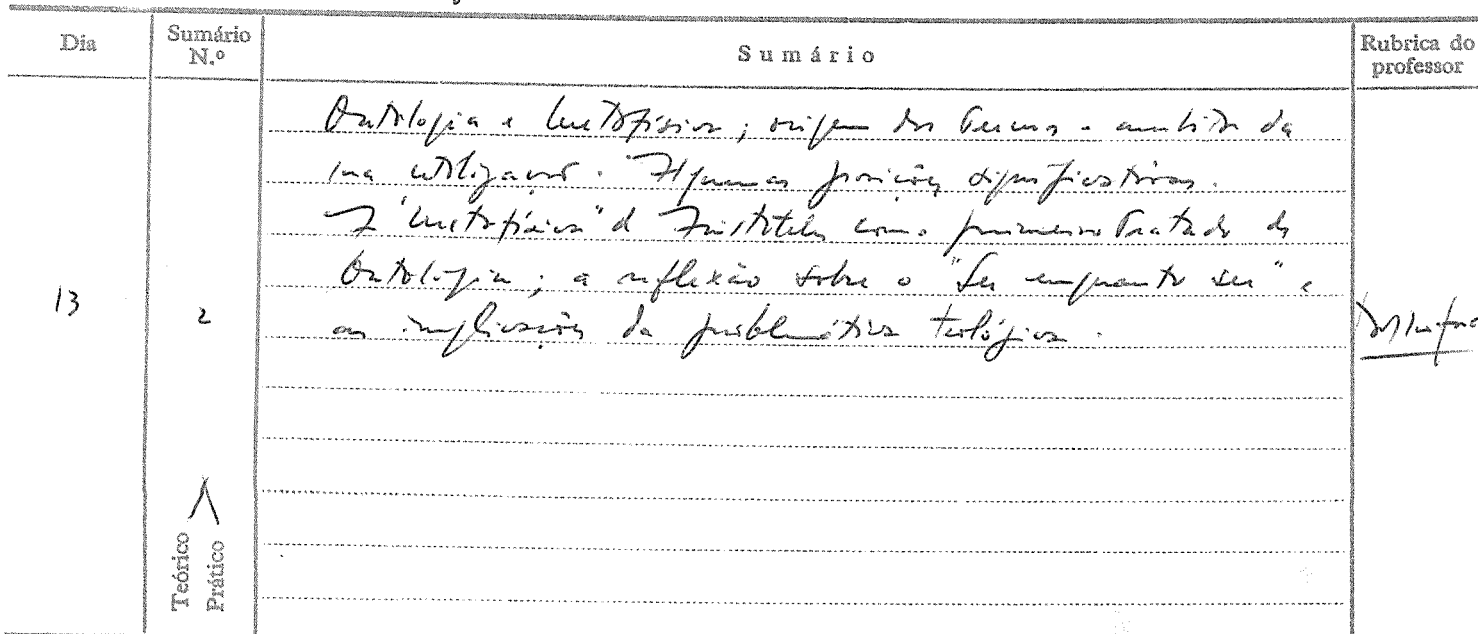 Dia
Sumário N.º
Sumário
Rubrica do professor
Ontologia e Metafísica; origem dos termos e âmbito da
sua utilização. Algumas posições significativas.
A "Metafísica" de Aristóteles como primeiro Tratado de
Ontologia; a reflexão sobre o "Ser enquanto ser" e
as implicações da problemática teológica.
13
2
Teórico
Prático